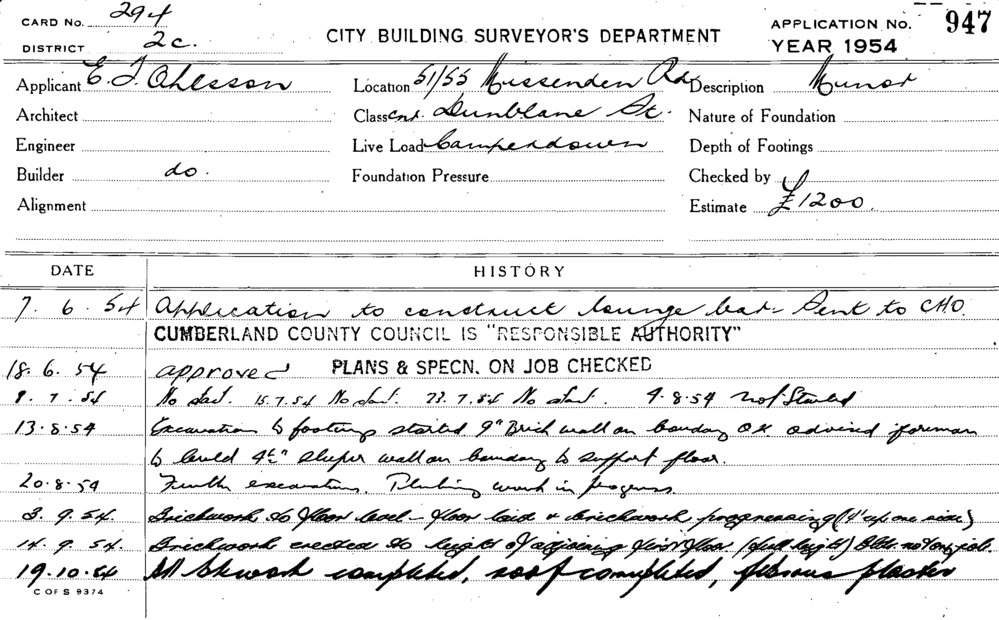 CARD No. 294
DISTRICT 2c.
CITY BUILDING SURVEYOR'S DEPARTMENT
APPLICATION No. 947
YEAR 1954
Applicant E. J. Ohlsson Location 51/55 Missenden Rd Description Minor
Architect Class cnr. Dunblane St. Nature of Foundation
Engineer Live Load Camperdown Depth of Footings
Builder do. Foundation Pressure Checked by
Alignment Estimate £1200.
DATE HISTORY
7. 6. 54 Application to construct lounge bar - Sent to CHO.
CUMBERLAND COUNTY COUNCIL IS "RESPONSIBLE AUTHORITY"
18. 6. 54 approved PLANS & SPECN. ON JOB CHECKED
9. 7. 54 No start. 15.7.54 No start. 22.7.54 No start. 4.8.54 Not Started
13.8.54 Excavation to footings started 9" Brick wall on bounday O.K. advised foreman
to build 4½" sleeper wall on bounday to support floor.
20.8.54 Further excavations. Plumbing work in progress.
3. 9. 54. Brickwork to floor level - floor laid & brickwork progressing (4' up one side)
14. 9. 54. Brickwork erected to height of adjoining first floor (full height) Bldr. not on job.
19.10.54 All Bkwork completed, roof completed, fibrous plaster
C OF S 9374